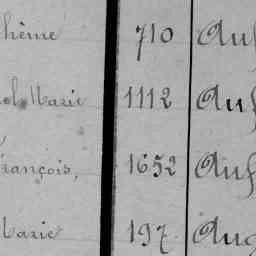 hème 710 Auf
ol Marie 1112 Auf
rançois, 1652 Auf
Marie 197. Aug